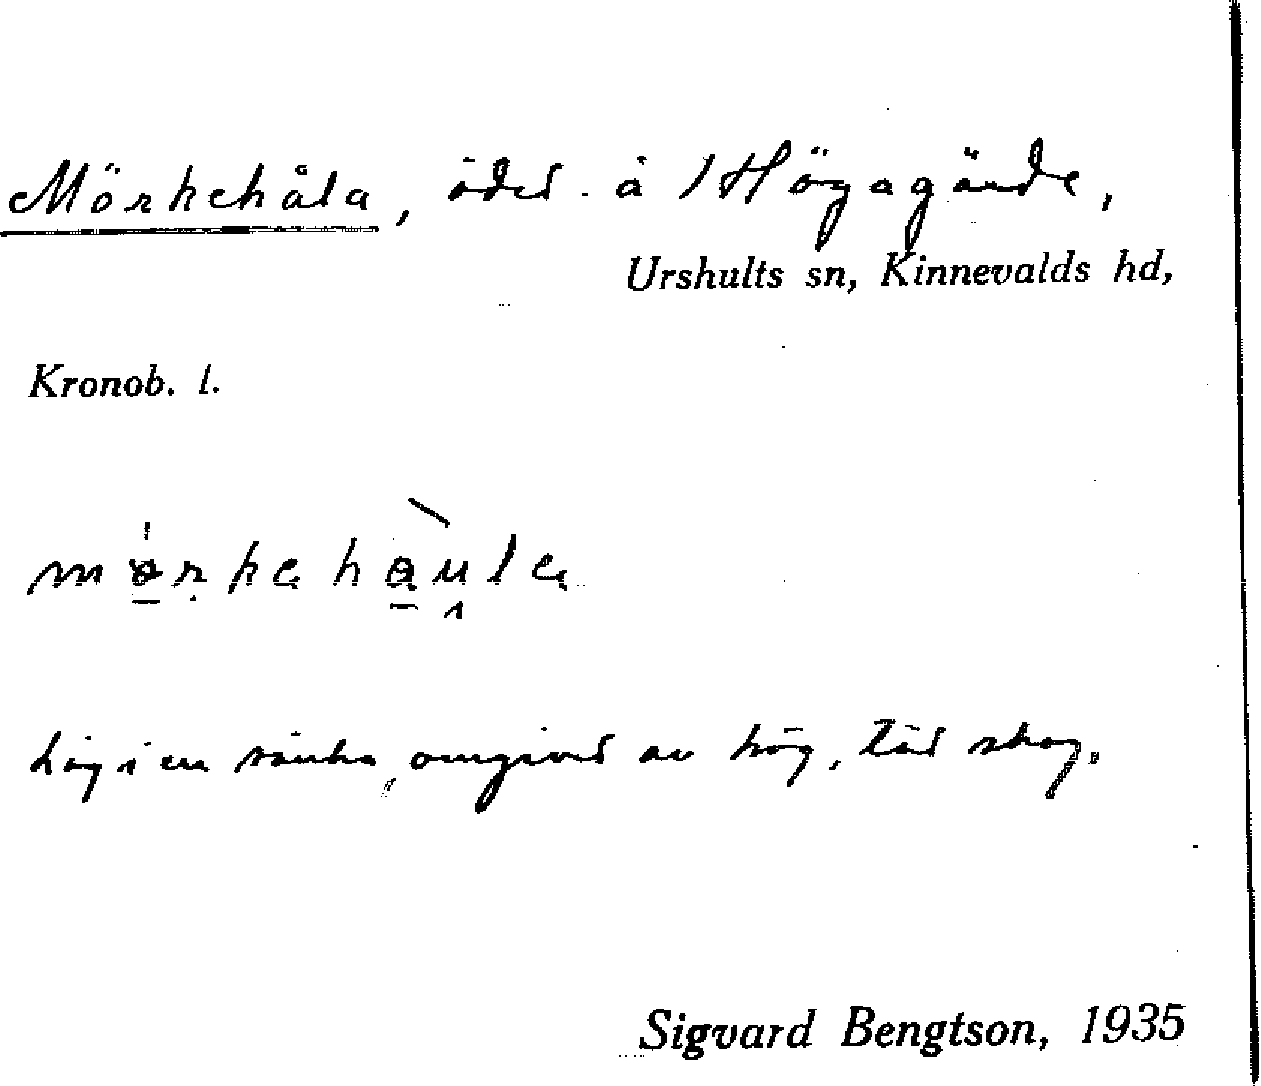 Mörkehåla, ödet. å /Högagärde,
Urshults sn, Kinnevalds hd,
Kronob. l.
mörkahàula
låg i en sänka, omgivet av hög, tät skog.
Sigvard Bengtson, 1935